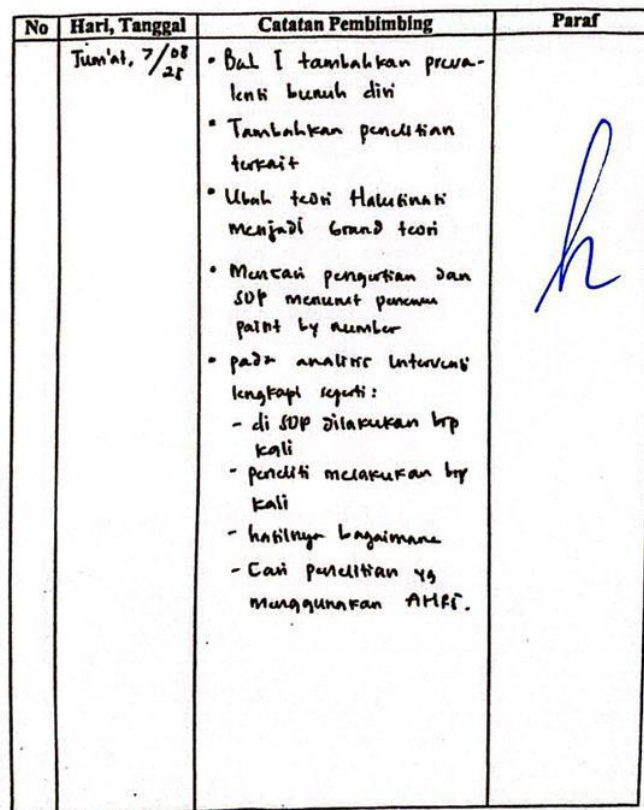 No Hari, Tanggal Catatan Pembimbing Paraf
Jum'at, 7/08 25
• Bab I tambahkan preva-
lensi bunuh diri
• Tambahkan penelitian
terkait
• Ubah teori Halusinasi
menjadi Grand teori
• Mencari pengertian dan
SOP menurut penemu
paint by number
• pada analisis intervensi
lengkapi seperti:
- di SOP dilakukan brp
kali
- peneliti melakukan brp
kali
- hasilnya bagaimana
- Cari penelitian yg
menggunakan AHRS.